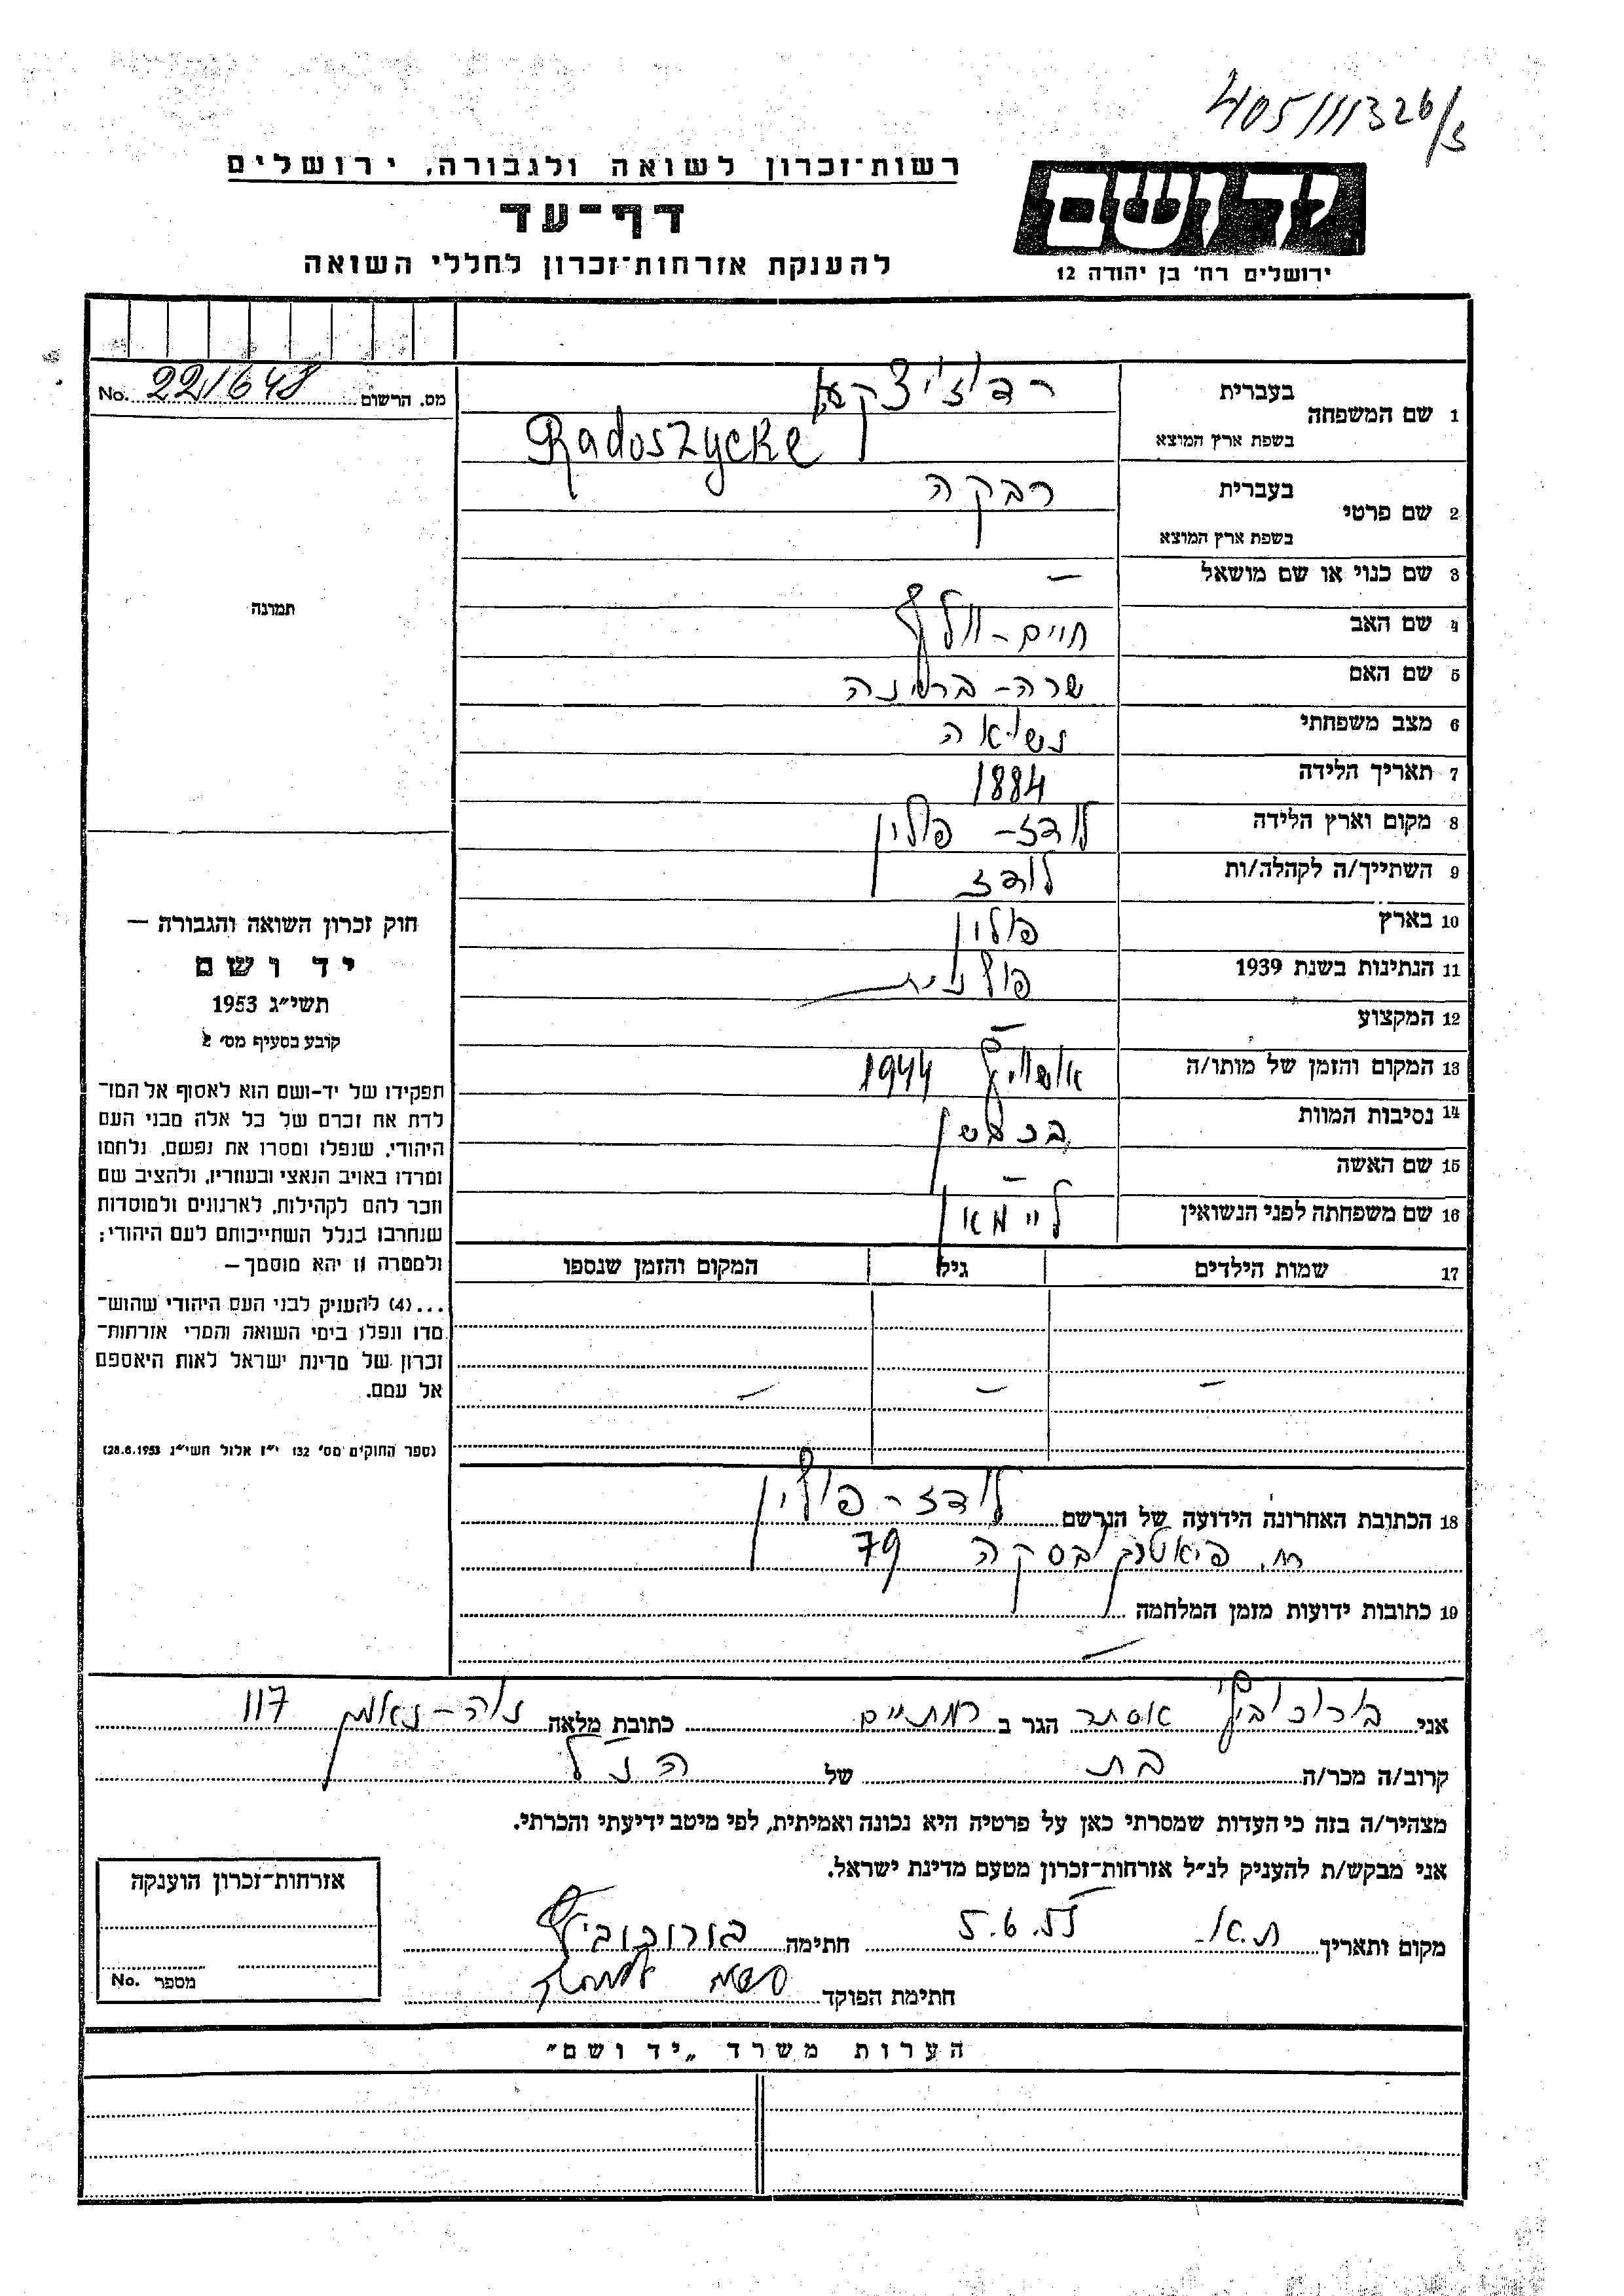 405/11326/3
יד ושם
ירושלים רח' בן יהודה 12
רשות־זכרון לשואה ולגבורה, ירושלים
דף־עד
להענקת אזרחות־זכרון לחללי השואה
מס. הרשום 221648 No.
1 שם המשפחה
בעברית
בשפת ארץ המוצא Radoszycke
2 שם פרטי
בעברית רבקה
בשפת ארץ המוצא
3 שם כנוי או שם מושאל —
4 שם האב חיים - וולף
5 שם האם שרה -
6 מצב משפחתי נשואה
7 תאריך הלידה 1884
8 מקום וארץ הלידה לודז - פולין
9 השתייך/ה לקהלה/ות לודז
10 בארץ פולין
11 הנתינות בשנת 1939 פולנית
12 המקצוע —
13 המקום והזמן של מותו/ה 1944
14 נסיבות המוות בכבשן
15 שם האשה —
16 שם משפחתה לפני הנשואין ליימאן
17 שמות הילדים גיל המקום והזמן שנספו
— — —
18 הכתובת האחרונה הידועה של הנרשם לודז - פולין
רח. 79
19 כתובות ידועות מזמן המלחמה
—
תמונה
חוק זכרון השואה והגבורה —
יד ושם
תשי״ג 1953
קובע בסעיף מס׳ 2
תפקידו של יד-ושם הוא לאסוף אל המו־
לדת את זכרם של כל אלה מבני העם
היהודי, שנפלו ומסרו את נפשם, נלחמו
ומרדו באויב הנאצי ובעוזריו, ולהציב שם
וזכר להם לקהילות, לארגונים ולמוסדות
שנחרבו בגלל השתייכותם לעם היהודי;
ולמטרה זו יהא מוסמך —
...(4) להעניק לבני העם היהודי שהוש־
מדו ונפלו בימי השואה והמרי אזרחות־
זכרון של מדינת ישראל לאות היאספם
אל עמם.
(ספר החוקים מס׳ 132 י״ז אלול תשי״ג 28.8.1953)
אני בורוכוביץ אסתר הגר ב רמתיים כתובת מלאה נוה-נאמן 117
קרוב/ה מכר/ה בת של הנ״ל
מצהיר/ה בזה כי העדות שמסרתי כאן על פרטיה היא נכונה ואמיתית, לפי מיטב ידיעתי והכרתי.
אני מבקש/ת להעניק לנ״ל אזרחות־זכרון מטעם מדינת ישראל.
מקום ותאריך ת.א. 5.6.55 חתימה בורוכוביץ
חתימת הפוקד
אזרחות־זכרון הוענקה
מספר No.
הערות משרד „יד ושם״